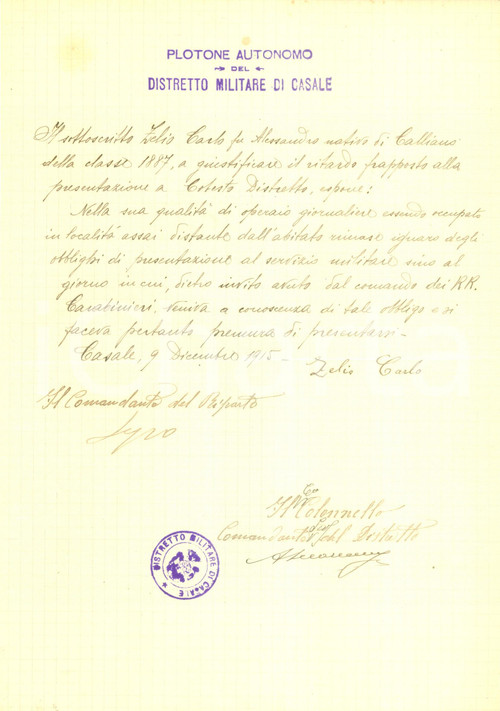 PLOTONE AUTONOMO
DEL
DISTRETTO MILITARE DI CASALE
Il sottoscritto Zelio Carlo fu Alessandro nativo di Calliano
della classe 1887, a giustificare il ritardo frapposto alla
presentazione a Cotesto Distretto, espone:
Nella sua qualità di operaio giornaliere essendo occupato
in località assai distante dall'abitato rimase ignaro degli
obblighi di presentazione al servizio militare sino al
giorno in cui, dietro invito avuto dal comando dei RR.
Carabinieri, veniva a conoscenza di tale obbligo e si
faceva pertanto premura di presentarsi -
Casale, 9 Dicembre 1915 -
Zelio Carlo
Il Comandante del Reparto
Il Colonnello
Comandante del Distretto
DISTRETTO MILITARE DI CASALE